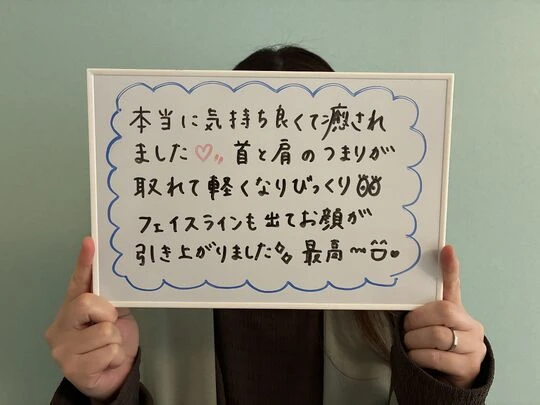 本当に気持ち良くて癒され
ました♡〃 首と肩のつまりが
取れて軽くなりびっくり👀
フェイスラインも出てお顔が
引き上がりました✧ 最高〜